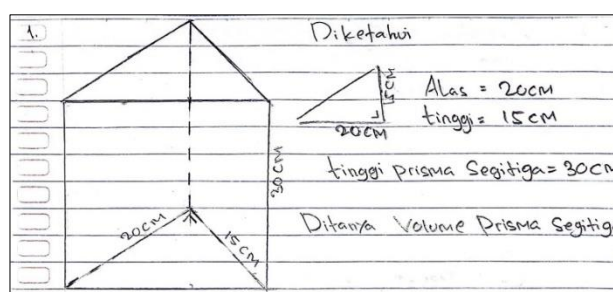 1.
Diketahui
15CM
Alas = 20CM
20CM
tinggi = 15CM
30CM
tinggi Prisma Segitiga = 30CM
Ditanya Volume Prisma Segitiga
20CM
15CM